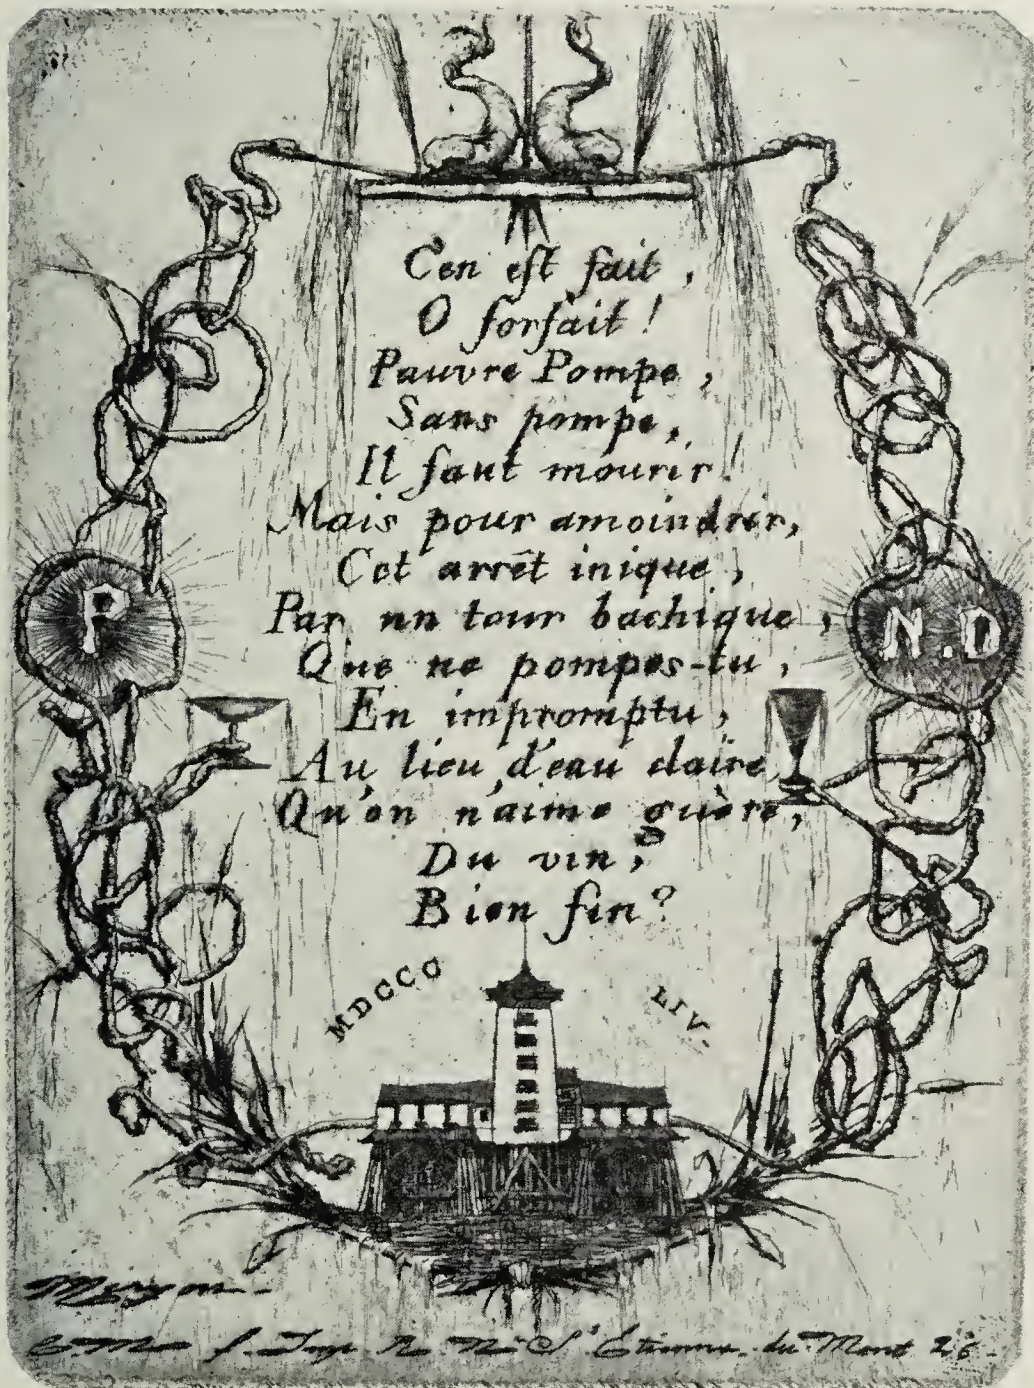 Cen est fait,
O forfait!
Pauvre Pompe,
Sans pompe,
Il faut mourir!
Mais pour amoindrir,
Cet arrêt inique,
Par un tour bachique,
P
N.D
Que ne pompes-tu,
En impromptu,
Au lieu d'eau claire
Qu'on n'aime guère,
Du vin,
Bien fin?
MDCCC LIV.
Meryon.
C.M f. Imp R. N. St Etienne. du Mont 26.